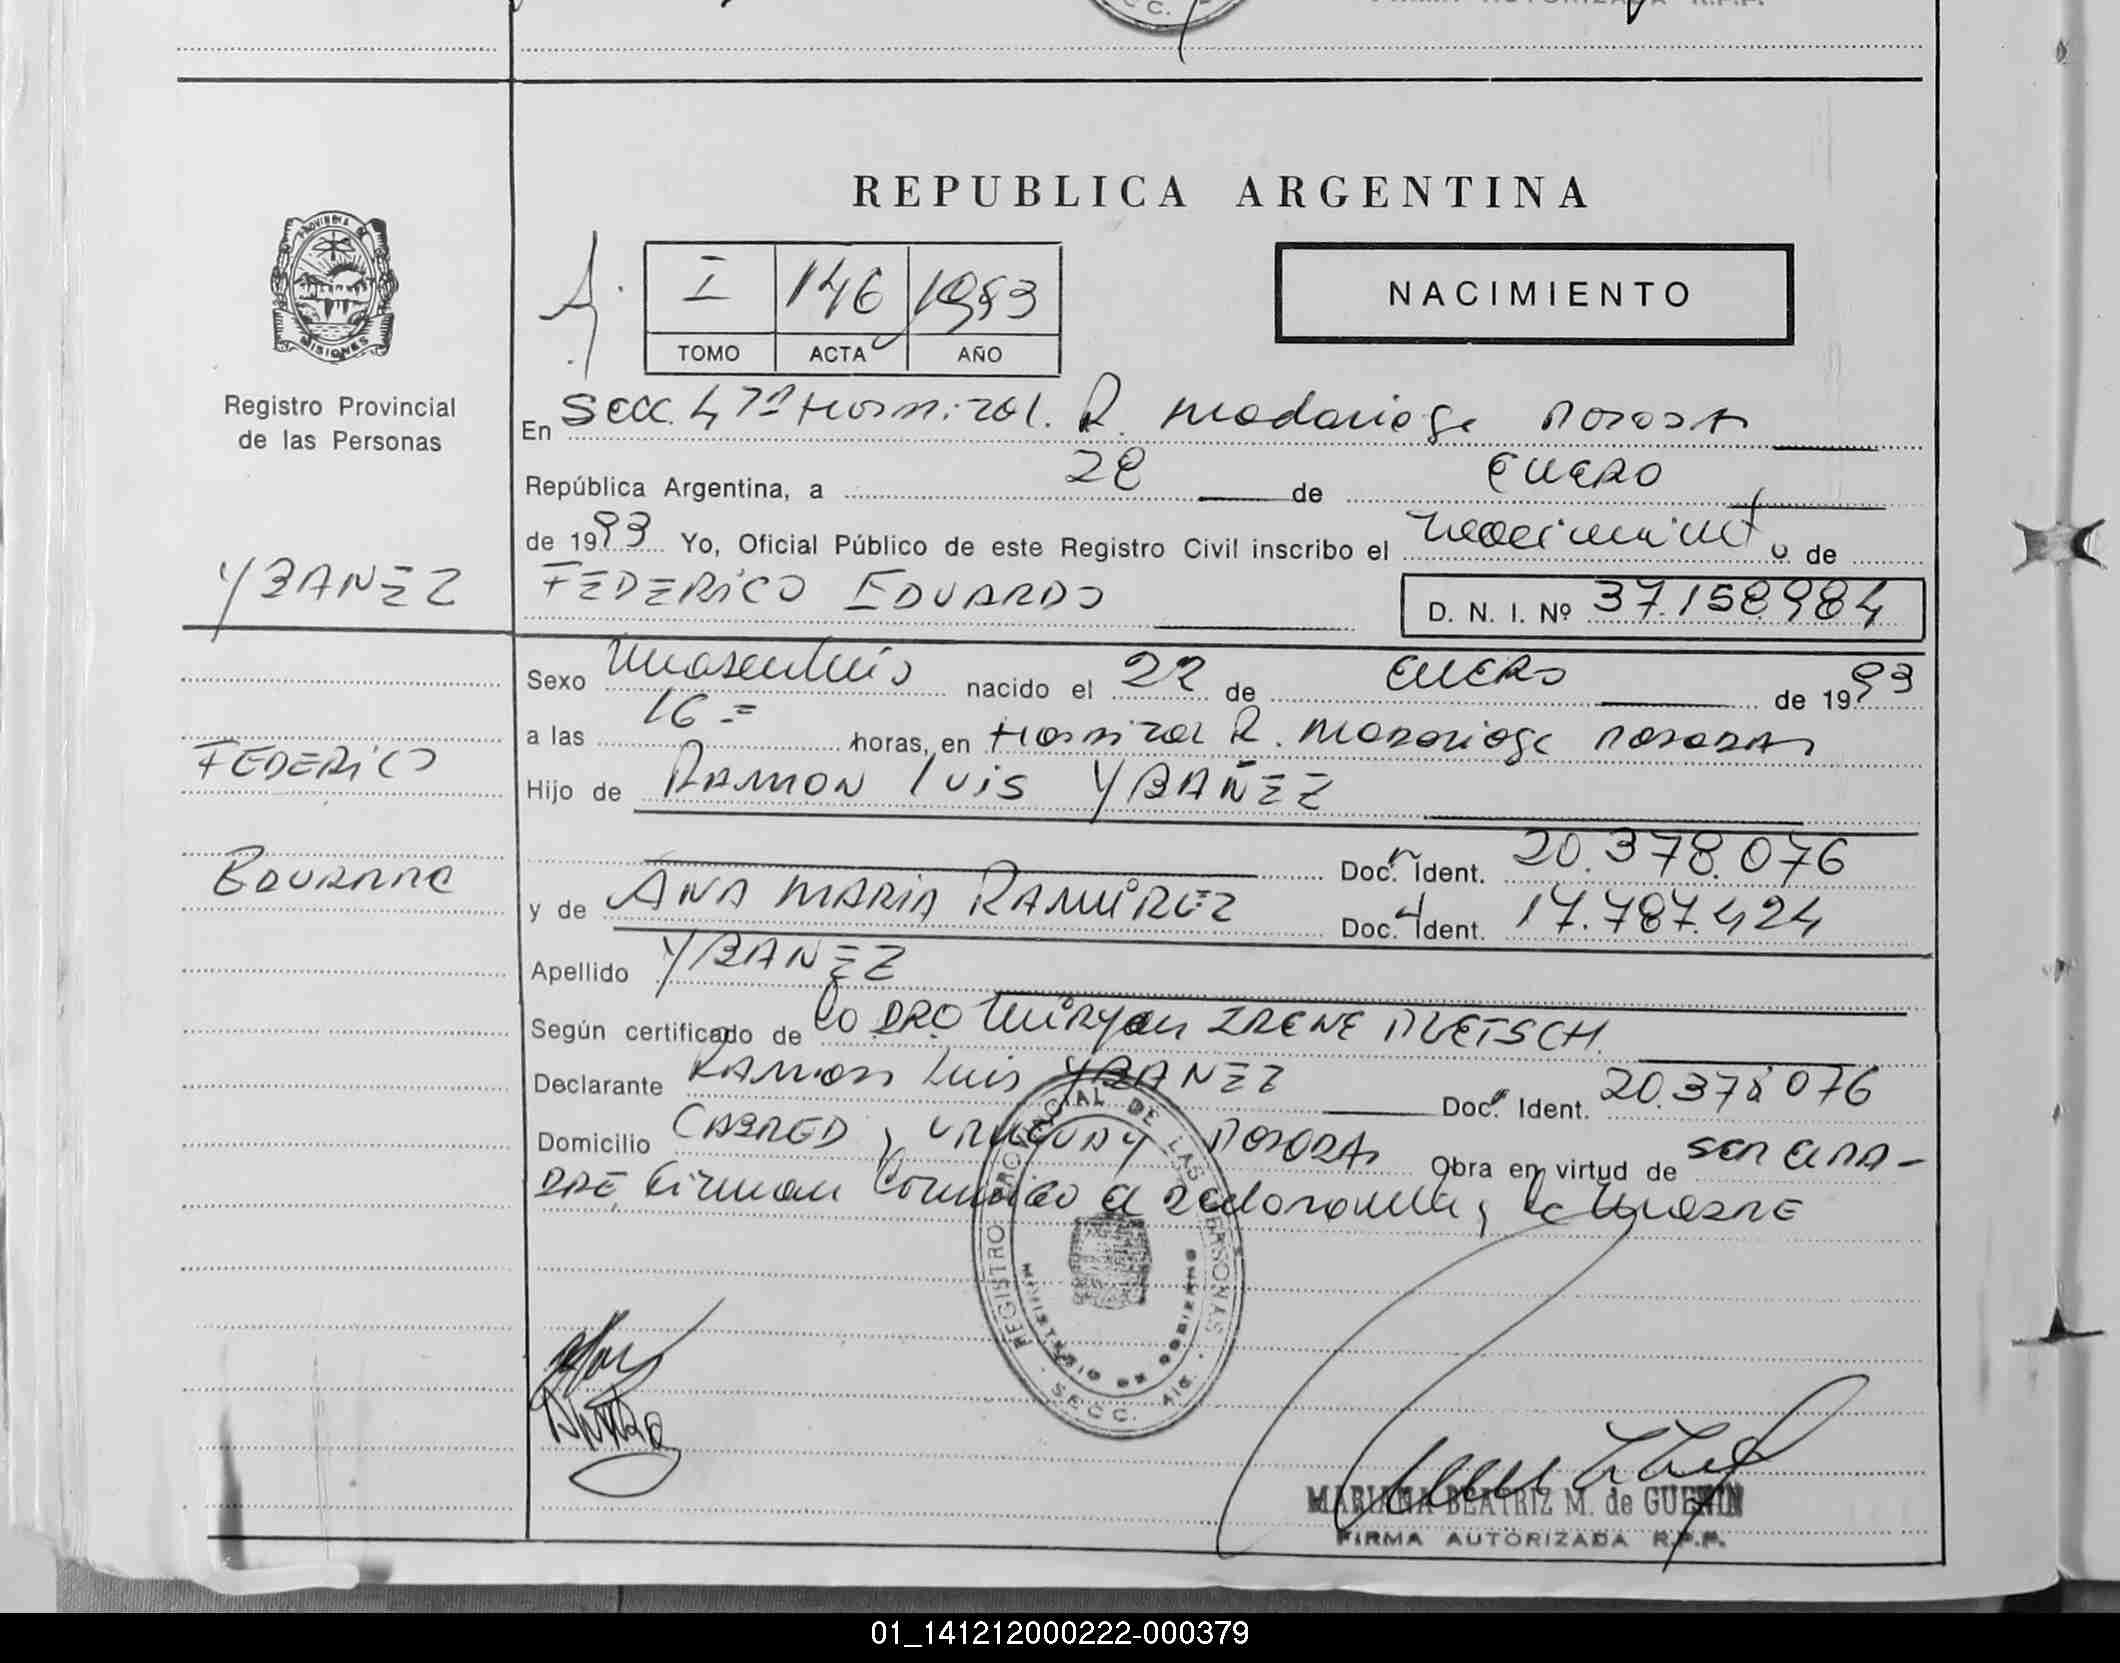 REPUBLICA ARGENTINA
PROVINCIA DE
MISIONES
I 146 1993
TOMO ACTA AÑO
NACIMIENTO
Registro Provincial
de las Personas
En Secc. 4ta Hospital. R. Madariaga Posadas
República Argentina, a 28 de ENERO
de 1993 Yo, Oficial Público de este Registro Civil inscribo el nacimiento de
YBAÑEZ
FEDERICO EDUARDO D. N. I. Nº 37.158.984
Sexo masculino nacido el 22 de ENERO de 1993
a las 16 = horas, en Hospital R. Madariaga Posadas
FEDERICO
Hijo de RAMON LUIS YBAÑEZ
Doc. Ident. 20.378.076
EDUARDO
y de ANA MARIA RAMIREZ Doc. Ident. 17.787.424
Apellido YBAÑEZ
Según certificado de la DRA Miryan IRENE PLETSCH
Declarante RAMON Luis YBAÑEZ Doc. Ident. 20.378.076
Domicilio CABRED y URUGUAY POSADAS Obra en virtud de SER EL PA-
DRE, firman conmigo el declarante y la MADRE
REGISTRO PROVINCIAL DE LAS PERSONAS
MINISTERIO DE GOBIERNO
SECC. 4ta.
MARIANA BEATRIZ M. de GUENIN
FIRMA AUTORIZADA R.P.P.
01_141212000222-000379